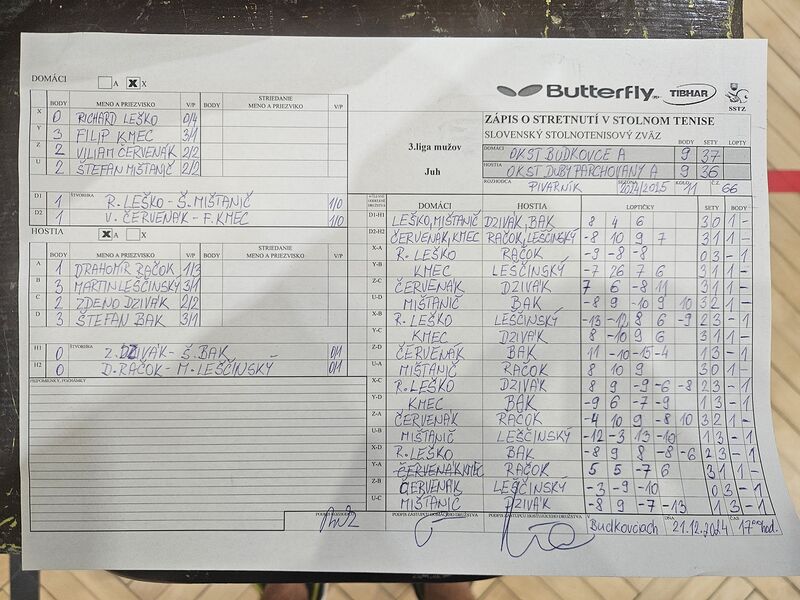 DOMÁCI A X X
BODY MENO A PRIEZVISKO V/P BODY STRIEDANIE MENO A PRIEZVISKO V/P
X 0 RICHARD LEŠKO 0/4
Y 3 FILIP KMEC 3/1
Z 2 VILIAM ČERVENÁK 2/2
U 2 ŠTEFAN MIŠTANIČ 2/2
D1 1 ŠTVORHRA R. LEŠKO - Š. MIŠTANIČ 1/0
D2 1 V. ČERVENÁK - F. KMEC 1/0
HOSTIA X A X
BODY MENO A PRIEZVISKO V/P BODY STRIEDANIE MENO A PRIEZVISKO V/P
A 1 DRAHOMÍR RAČOK 1/3
B 3 MARTIN LEŠČINSKÝ 3/1
C 2 ZDENO DZIVÁK 2/2
D 3 ŠTEFAN BAK 3/1
H1 0 ŠTVORHRA Z. DZIVÁK - Š. BAK 0/1
H2 0 D. RAČOK - M. LEŠČINSKÝ 0/1
PRIPOMIENKY, POZNÁMKY
Butterfly TIBHAR SSTZ
ZÁPIS O STRETNUTÍ V STOLNOM TENISE
SLOVENSKÝ STOLNOTENISOVÝ ZVÄZ
3.liga mužov
Juh
BODY SETY LOPTY
DOMÁCI OKST BUDKOVCE A 9 37
HOSTIA OKST DUBY PARCHOVANY A 9 36
ROZHODCA PIVARNÍK SEZÓNA 2024/2025 KOLO 11 Č.Z. 66
DOMÁCI HOSTIA LOPTIČKY SETY BODY
D1-H1 LEŠKO, MIŠTANIČ DZIVÁK, BAK 8 4 6 3 0 1 -
D2-H2 ČERVENÁK, KMEC RAČOK, LEŠČINSKÝ -8 10 9 7 3 1 1 -
X-A R. LEŠKO RAČOK -9 -8 -8 0 3 - 1
Y-B KMEC LEŠČINSKÝ -7 26 7 6 3 1 1 -
Z-C ČERVENÁK DZIVÁK 7 6 -8 11 3 1 1 -
U-D MIŠTANIČ BAK -8 9 -10 9 10 3 2 1 -
X-B R. LEŠKO LEŠČINSKÝ -13 -12 8 6 -9 2 3 - 1
Y-C KMEC DZIVÁK 8 -10 9 6 3 1 1 -
Z-D ČERVENÁK BAK 11 -10 -15 -4 1 3 - 1
U-A MIŠTANIČ RAČOK 8 10 9 3 0 1 -
X-C R. LEŠKO DZIVÁK 8 9 -9 -6 -8 2 3 - 1
Y-D KMEC BAK -9 6 -7 -9 1 3 - 1
Z-A ČERVENÁK RAČOK -4 10 9 -8 10 3 2 1 -
U-B MIŠTANIČ LEŠČINSKÝ -12 -3 13 -10 1 3 - 1
X-D R. LEŠKO BAK -8 9 8 -8 -6 2 3 - 1
Y-A ČERVENÁK KMEC RAČOK 5 5 -7 6 3 1 1 -
Z-B ČERVENÁK LEŠČINSKÝ -3 -9 -10 0 3 - 1
U-C MIŠTANIČ DZIVÁK -8 9 -7 -13 1 3 - 1
PODPIS ROZHODCU PODPIS ZÁSTUPCU DOMÁCEHO DRUŽSTVA PODPIS ZÁSTUPCU HOSŤUJÚCEHO DRUŽSTVA
V Budkovciach DŇA 21.12.2024 ČAS 17 00 hod.